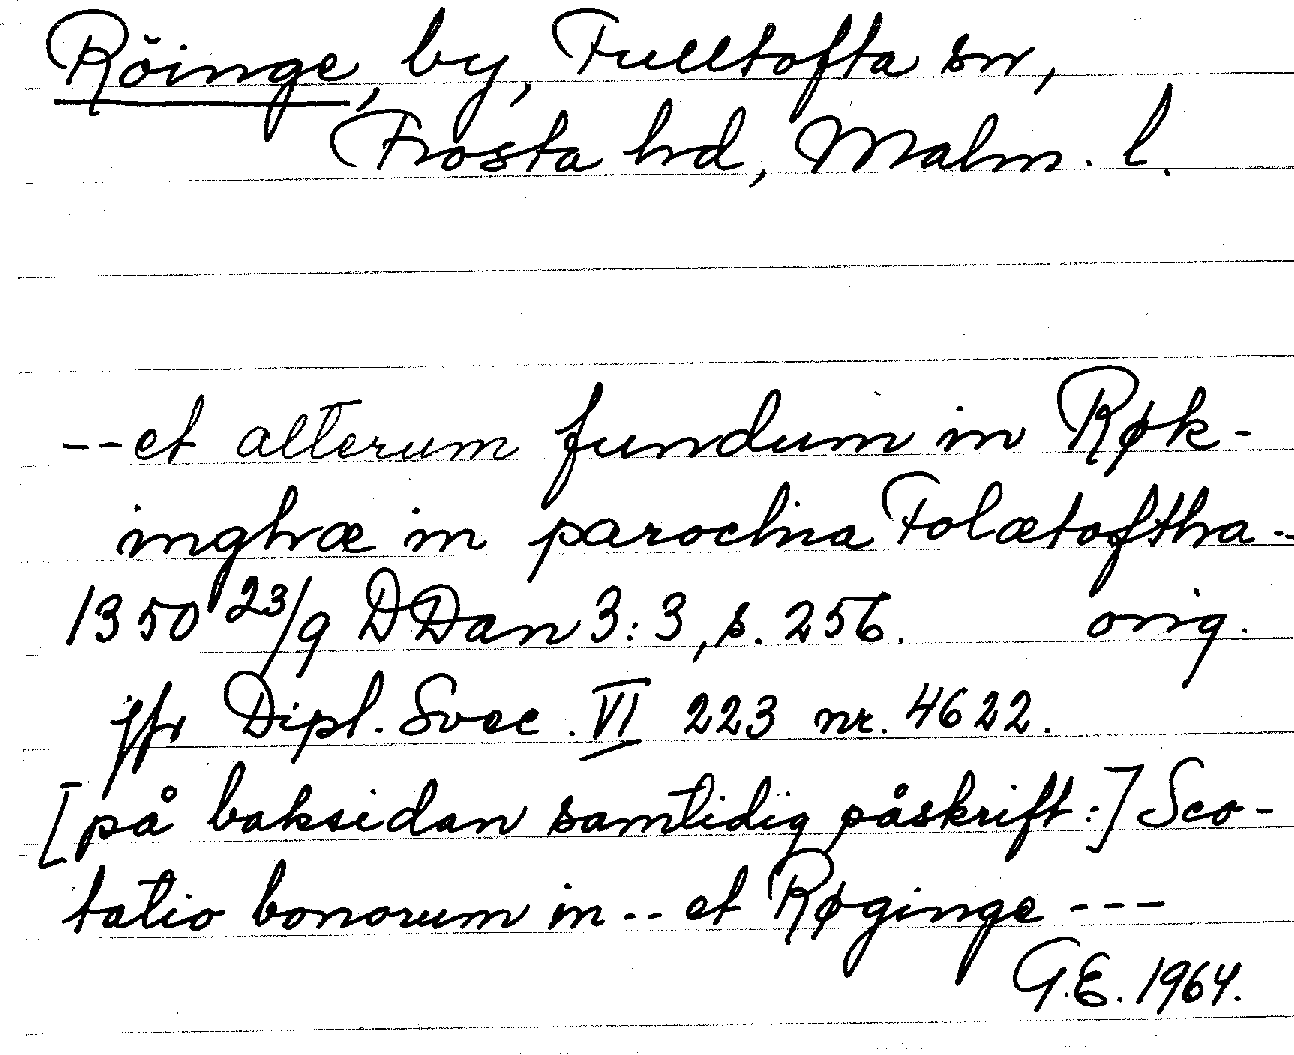 Röinge, by, Fulltofta sn,
Frosta hd, Malm. l.
--et alterum fundum in Røk-
inghæ in parochia Folætoftha--
1350 23/9 DDan 3:3, s. 256. orig.
jfr Dipl. Svec. VI 223 nr. 4622.
[på baksidan samtidig påskrift:] Sco-
tatio bonorum in -- et Røginge ---
G.E. 1964.